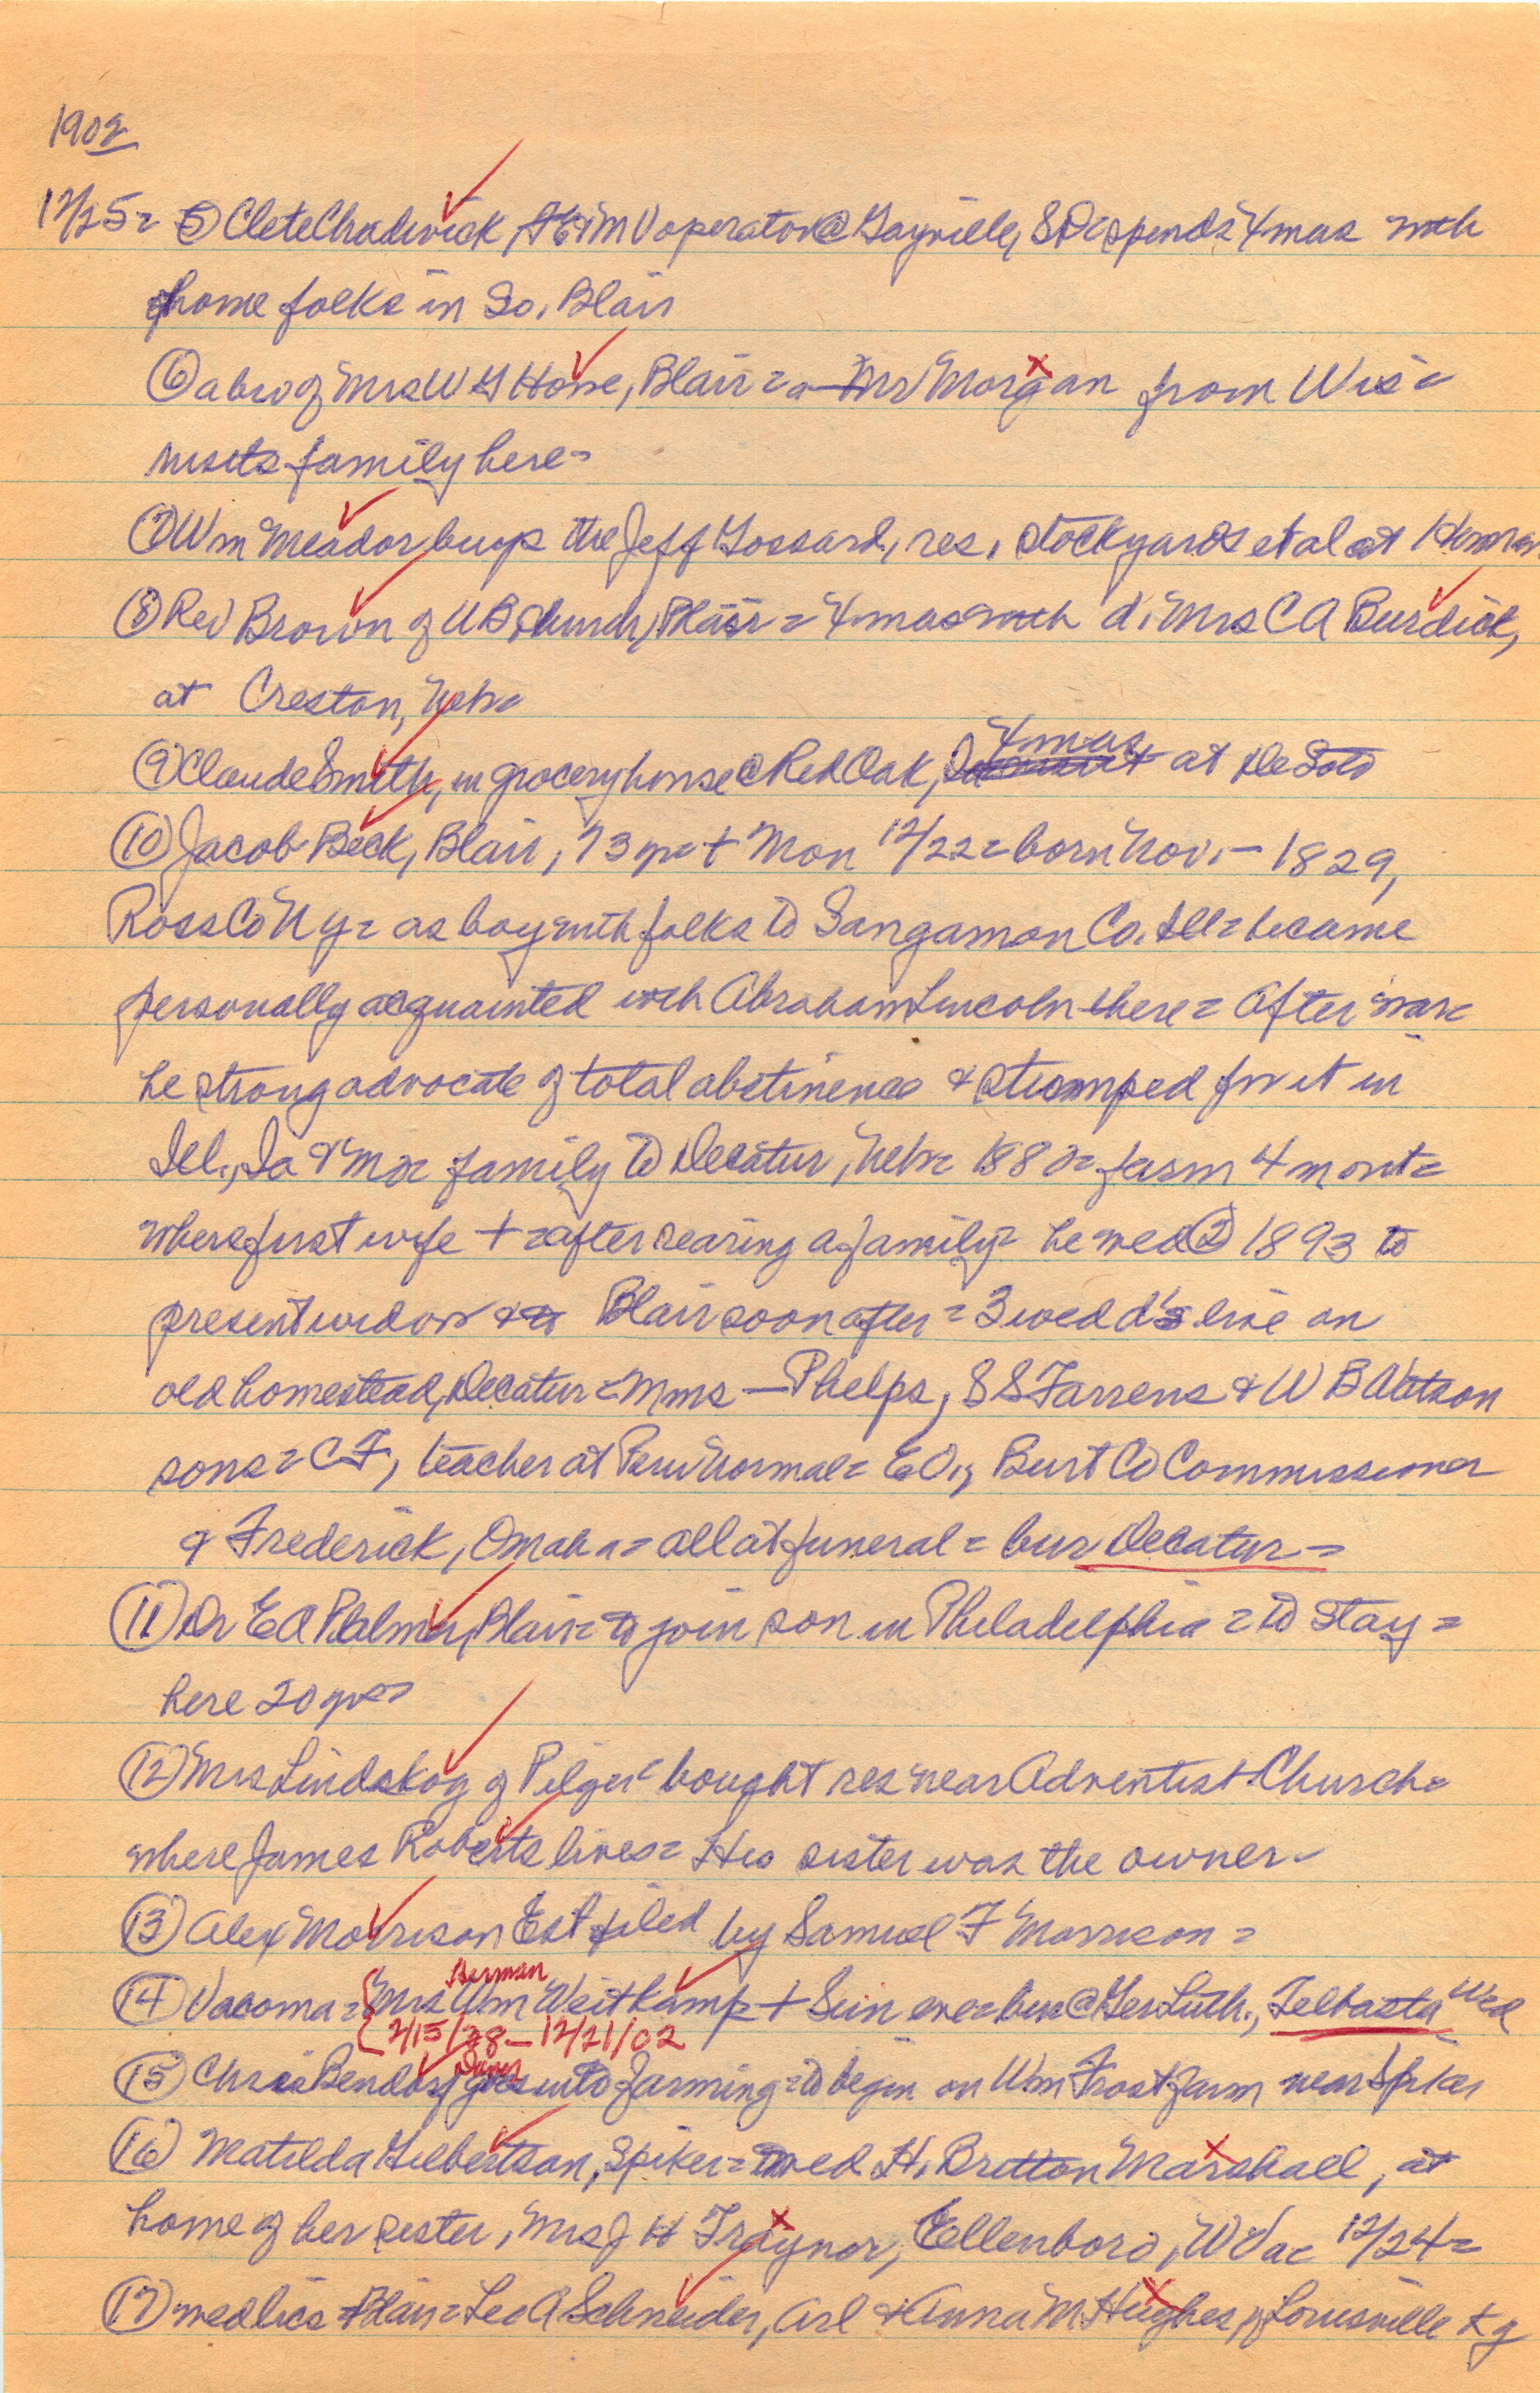 1902
12/25= ⑤ Clete Chadwick, operator @ Gayville, SD= spends 4mas with
home folks in So. Blair
⑥ a bro of Mrs W H House, Blair = a Mr Morgan from Wis=
visits family here=
⑦ Wm Meador buys the Jeff Gossard, res, stockyards et al at Herman
⑧ Rev Brown of UB Church, Blair = 4mas with d. Mrs C A Burdick,
at Creston, Nebr=
4mas
⑨ Claude Smith, in grocery house @ Red Oak, Ia at De Soto
⑩ Jacob Beck, Blair, 73 yrs + Mon 12/22= born Nov. - 1829,
Ross Co N Y= as boy with folks to Sangamon Co. Ill= became
personally acquainted with Abraham Lincoln there= After war=
he strong advocate of total abstinence & stumped for it in
Ill., Ia & Mo= family to Decatur, Nebr= 1880= farm 4 mont=
where first wife += after rearing a family= he wed ② 1893 to
present widow & to Blair soon after= 3 wed d's live on
old homestead, Decatur= Mms — Phelps, S S Farrens & W B Watson
sons= C F, teacher at Peru Normal= E O., Burt Co Commissioner
& Frederick, Omaha= all at funeral= bur Decatur=
⑪ Dr Ed Palmer, Blair= to join son in Philadelphia= to stay=
here 20 yrs=
⑫ Mrs Lindskog of Pilger= bought res near Adventist Church=
where James Roberts lives= His sister was the owner-
⑬ Alex Morrison Est filed by Samuel F Morrison=
Herman
⑭ Vacoma= Mrs Wm Weitkamp + Sun eve= bur @ Ger Luth., Telbasta Wed
2/15/28 - 12/21/02
⑮ Chris Bendorf goes into farming= to begin on Wm Frost farm near Spiker
⑯ Matilda Gilbertson, Spiker= wed H. Britton Marshall, at
home of her sister, Mrs J H Traynor, Ellenboro, W Va= 12/24=
⑰ wed lics Blair= Leo A Schneider, Arl & Anna M Hughes, of Louisville Ky